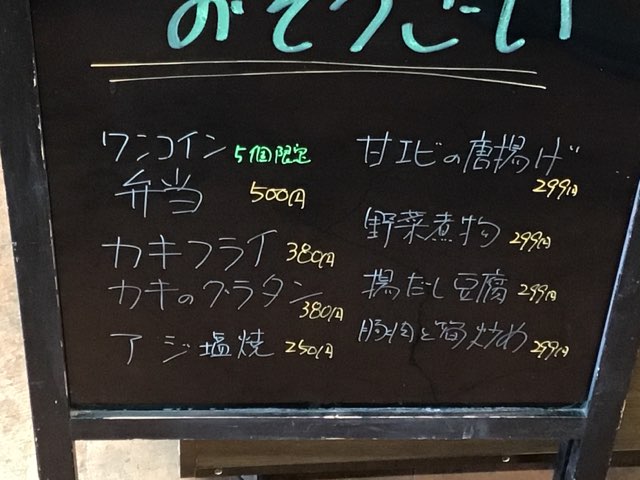 おそうざい
ワンコイン 5個限定
弁当 500円
カキフライ 380円
カキのグラタン
380円
アジ塩焼 250円
甘エビの唐揚げ
299円
野菜煮物 299円
揚だし豆腐 299円
豚肉と筍炒め 299円